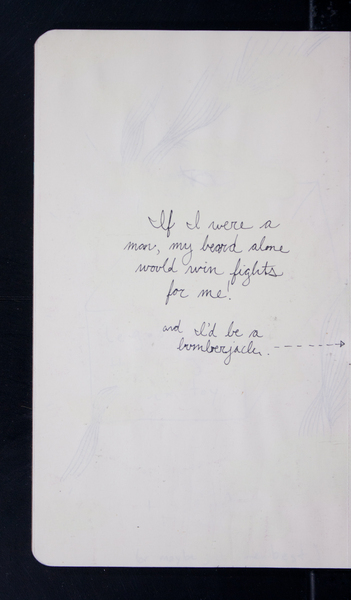 If I were a
man, my beard alone
would win fights
for me!
and I'd be a
lumberjack.